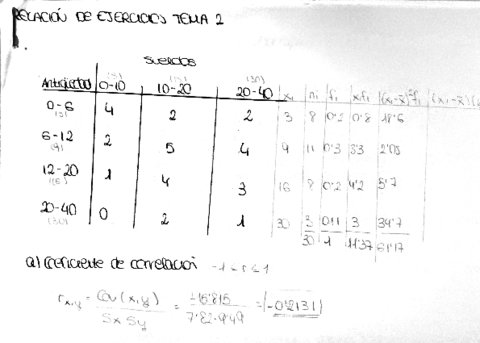 RELACIÓN DE EJERCICIOS TEMA 2
SUELDOS
(5) (15) (30)
Antigüedad 0-10 10-20 20-40 xi ni fi xifi (xi-x̄)²fi
0-6 4 2 2 3 8 0'2 0'8 18'6
(3)
6-12 2 5 4 9 11 0'3 3'3 2'05
(9)
12-20 1 4 3 16 8 0'2 4'2 5'7
(16)
20-40 0 2 1 30 3 0'11 3 34'7
(30)
30 1 11'37 61'17
a) Coeficiente de correlación -1 ≤ r ≤ 1
rx,y = Cov (x,y) / Sx Sy = -15'815 / 7'82·9'49 = (-0'2131)